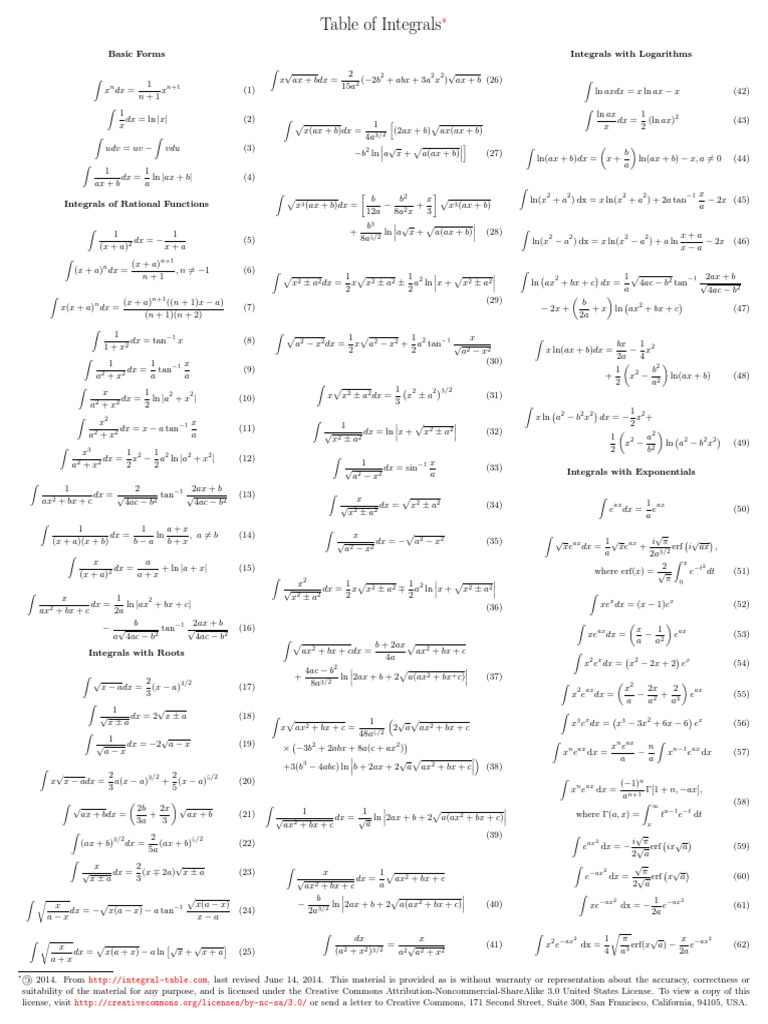 Table of Integrals*
Basic Forms
∫ xⁿ dx = 1/(n+1) xⁿ⁺¹ (1)
∫ 1/x dx = ln |x| (2)
∫ u dv = uv − ∫ v du (3)
∫ 1/(ax + b) dx = 1/a ln |ax + b| (4)
Integrals of Rational Functions
∫ 1/(x + a)² dx = − 1/(x + a) (5)
∫ (x + a)ⁿ dx = (x + a)ⁿ⁺¹/(n + 1), n ≠ −1 (6)
∫ x(x + a)ⁿ dx = (x + a)ⁿ⁺¹((n + 1)x − a)/((n + 1)(n + 2)) (7)
∫ 1/(1 + x²) dx = tan⁻¹ x (8)
∫ 1/(a² + x²) dx = 1/a tan⁻¹ x/a (9)
∫ x/(a² + x²) dx = 1/2 ln |a² + x²| (10)
∫ x²/(a² + x²) dx = x − a tan⁻¹ x/a (11)
∫ x³/(a² + x²) dx = 1/2 x² − 1/2 a² ln |a² + x²| (12)
∫ 1/(ax² + bx + c) dx = 2/√(4ac − b²) tan⁻¹ (2ax + b)/√(4ac − b²) (13)
∫ 1/((x + a)(x + b)) dx = 1/(b − a) ln (a + x)/(b + x), a ≠ b (14)
∫ x/(x + a)² dx = a/(a + x) + ln |a + x| (15)
∫ x/(ax² + bx + c) dx = 1/(2a) ln |ax² + bx + c|
− b/(a√(4ac − b²)) tan⁻¹ (2ax + b)/√(4ac − b²) (16)
Integrals with Roots
∫ √(x − a) dx = 2/3 (x − a)^(3/2) (17)
∫ 1/√(x ± a) dx = 2√(x ± a) (18)
∫ 1/√(a − x) dx = −2√(a − x) (19)
∫ x√(x − a) dx = 2/3 a(x − a)^(3/2) + 2/5 (x − a)^(5/2) (20)
∫ √(ax + b) dx = (2b/3a + 2x/3) √(ax + b) (21)
∫ (ax + b)^(3/2) dx = 2/(5a) (ax + b)^(5/2) (22)
∫ x/√(x ± a) dx = 2/3 (x ∓ 2a)√(x ± a) (23)
∫ √(x/(a − x)) dx = −√(x(a − x)) − a tan⁻¹ √(x(a − x))/(x − a) (24)
∫ √(x/(a + x)) dx = √(x(a + x)) − a ln [√x + √(x + a)] (25)
∫ x√(ax + b) dx = 2/(15a²) (−2b² + abx + 3a²x²)√(ax + b) (26)
∫ √(x(ax + b)) dx = 1/(4a^(3/2)) [(2ax + b)√(ax(ax + b))
−b² ln |a√x + √(a(ax + b))|] (27)
∫ √(x³(ax + b)) dx = [b/(12a) − b²/(8a²x) + x/3] √(x³(ax + b))
+ b³/(8a^(5/2)) ln |a√x + √(a(ax + b))| (28)
∫ √(x² ± a²) dx = 1/2 x√(x² ± a²) ± 1/2 a² ln |x + √(x² ± a²)|
(29)
∫ √(a² − x²) dx = 1/2 x√(a² − x²) + 1/2 a² tan⁻¹ x/√(a² − x²)
(30)
∫ x√(x² ± a²) dx = 1/3 (x² ± a²)^(3/2) (31)
∫ 1/√(x² ± a²) dx = ln |x + √(x² ± a²)| (32)
∫ 1/√(a² − x²) dx = sin⁻¹ x/a (33)
∫ x/√(x² ± a²) dx = √(x² ± a²) (34)
∫ x/√(a² − x²) dx = −√(a² − x²) (35)
∫ x²/√(x² ± a²) dx = 1/2 x√(x² ± a²) ∓ 1/2 a² ln |x + √(x² ± a²)|
(36)
∫ √(ax² + bx + c) dx = (b + 2ax)/(4a) √(ax² + bx + c)
+ (4ac − b²)/(8a^(3/2)) ln |2ax + b + 2√(a(ax² + bx⁺c))| (37)
∫ x√(ax² + bx + c) = 1/(48a^(5/2)) (2√a√(ax² + bx + c)
× (−3b² + 2abx + 8a(c + ax²))
+3(b³ − 4abc) ln |b + 2ax + 2√a√(ax² + bx + c)|) (38)
∫ 1/√(ax² + bx + c) dx = 1/√a ln |2ax + b + 2√(a(ax² + bx + c))|
(39)
∫ x/√(ax² + bx + c) dx = 1/a √(ax² + bx + c)
− b/(2a^(3/2)) ln |2ax + b + 2√(a(ax² + bx + c))| (40)
∫ dx/(a² + x²)^(3/2) = x/(a²√(a² + x²)) (41)
Integrals with Logarithms
∫ ln ax dx = x ln ax − x (42)
∫ ln ax/x dx = 1/2 (ln ax)² (43)
∫ ln(ax + b) dx = (x + b/a) ln(ax + b) − x, a ≠ 0 (44)
∫ ln(x² + a²) dx = x ln(x² + a²) + 2a tan⁻¹ x/a − 2x (45)
∫ ln(x² − a²) dx = x ln(x² − a²) + a ln (x + a)/(x − a) − 2x (46)
∫ ln (ax² + bx + c) dx = 1/a √(4ac − b²) tan⁻¹ (2ax + b)/√(4ac − b²)
− 2x + (b/2a + x) ln (ax² + bx + c) (47)
∫ x ln(ax + b) dx = bx/2a − 1/4 x²
+ 1/2 (x² − b²/a²) ln(ax + b) (48)
∫ x ln (a² − b²x²) dx = −1/2 x² +
1/2 (x² − a²/b²) ln (a² − b²x²) (49)
Integrals with Exponentials
∫ e^(ax) dx = 1/a e^(ax) (50)
∫ √x e^(ax) dx = 1/a √x e^(ax) + i√π/(2a^(3/2)) erf (i√(ax)),
where erf(x) = 2/√π ∫₀ˣ e^(−t²) dt (51)
∫ xeˣ dx = (x − 1)eˣ (52)
∫ xe^(ax) dx = (x/a − 1/a²) e^(ax) (53)
∫ x²eˣ dx = (x² − 2x + 2) eˣ (54)
∫ x²e^(ax) dx = (x²/a − 2x/a² + 2/a³) e^(ax) (55)
∫ x³eˣ dx = (x³ − 3x² + 6x − 6) eˣ (56)
∫ xⁿe^(ax) dx = xⁿe^(ax)/a − n/a ∫ xⁿ⁻¹e^(ax) dx (57)
∫ xⁿe^(ax) dx = (−1)ⁿ/aⁿ⁺¹ Γ[1 + n, −ax],
where Γ(a, x) = ∫ₓ^∞ t^(a−1)e^(−t) dt (58)
∫ e^(ax²) dx = − i√π/(2√a) erf (ix√a) (59)
∫ e^(−ax²) dx = √π/(2√a) erf (x√a) (60)
∫ xe^(−ax²) dx = − 1/(2a) e^(−ax²) (61)
∫ x²e^(−ax²) dx = 1/4 √(π/a³) erf(x√a) − x/(2a) e^(−ax²) (62)
* 2014. From http://integral-table.com, last revised June 14, 2014. This material is provided as is without warranty or representation about the accuracy, correctness or
suitability of the material for any purpose, and is licensed under the Creative Commons Attribution-Noncommercial-ShareAlike 3.0 United States License. To view a copy of this
license, visit http://creativecommons.org/licenses/by-nc-sa/3.0/ or send a letter to Creative Commons, 171 Second Street, Suite 300, San Francisco, California, 94105, USA.